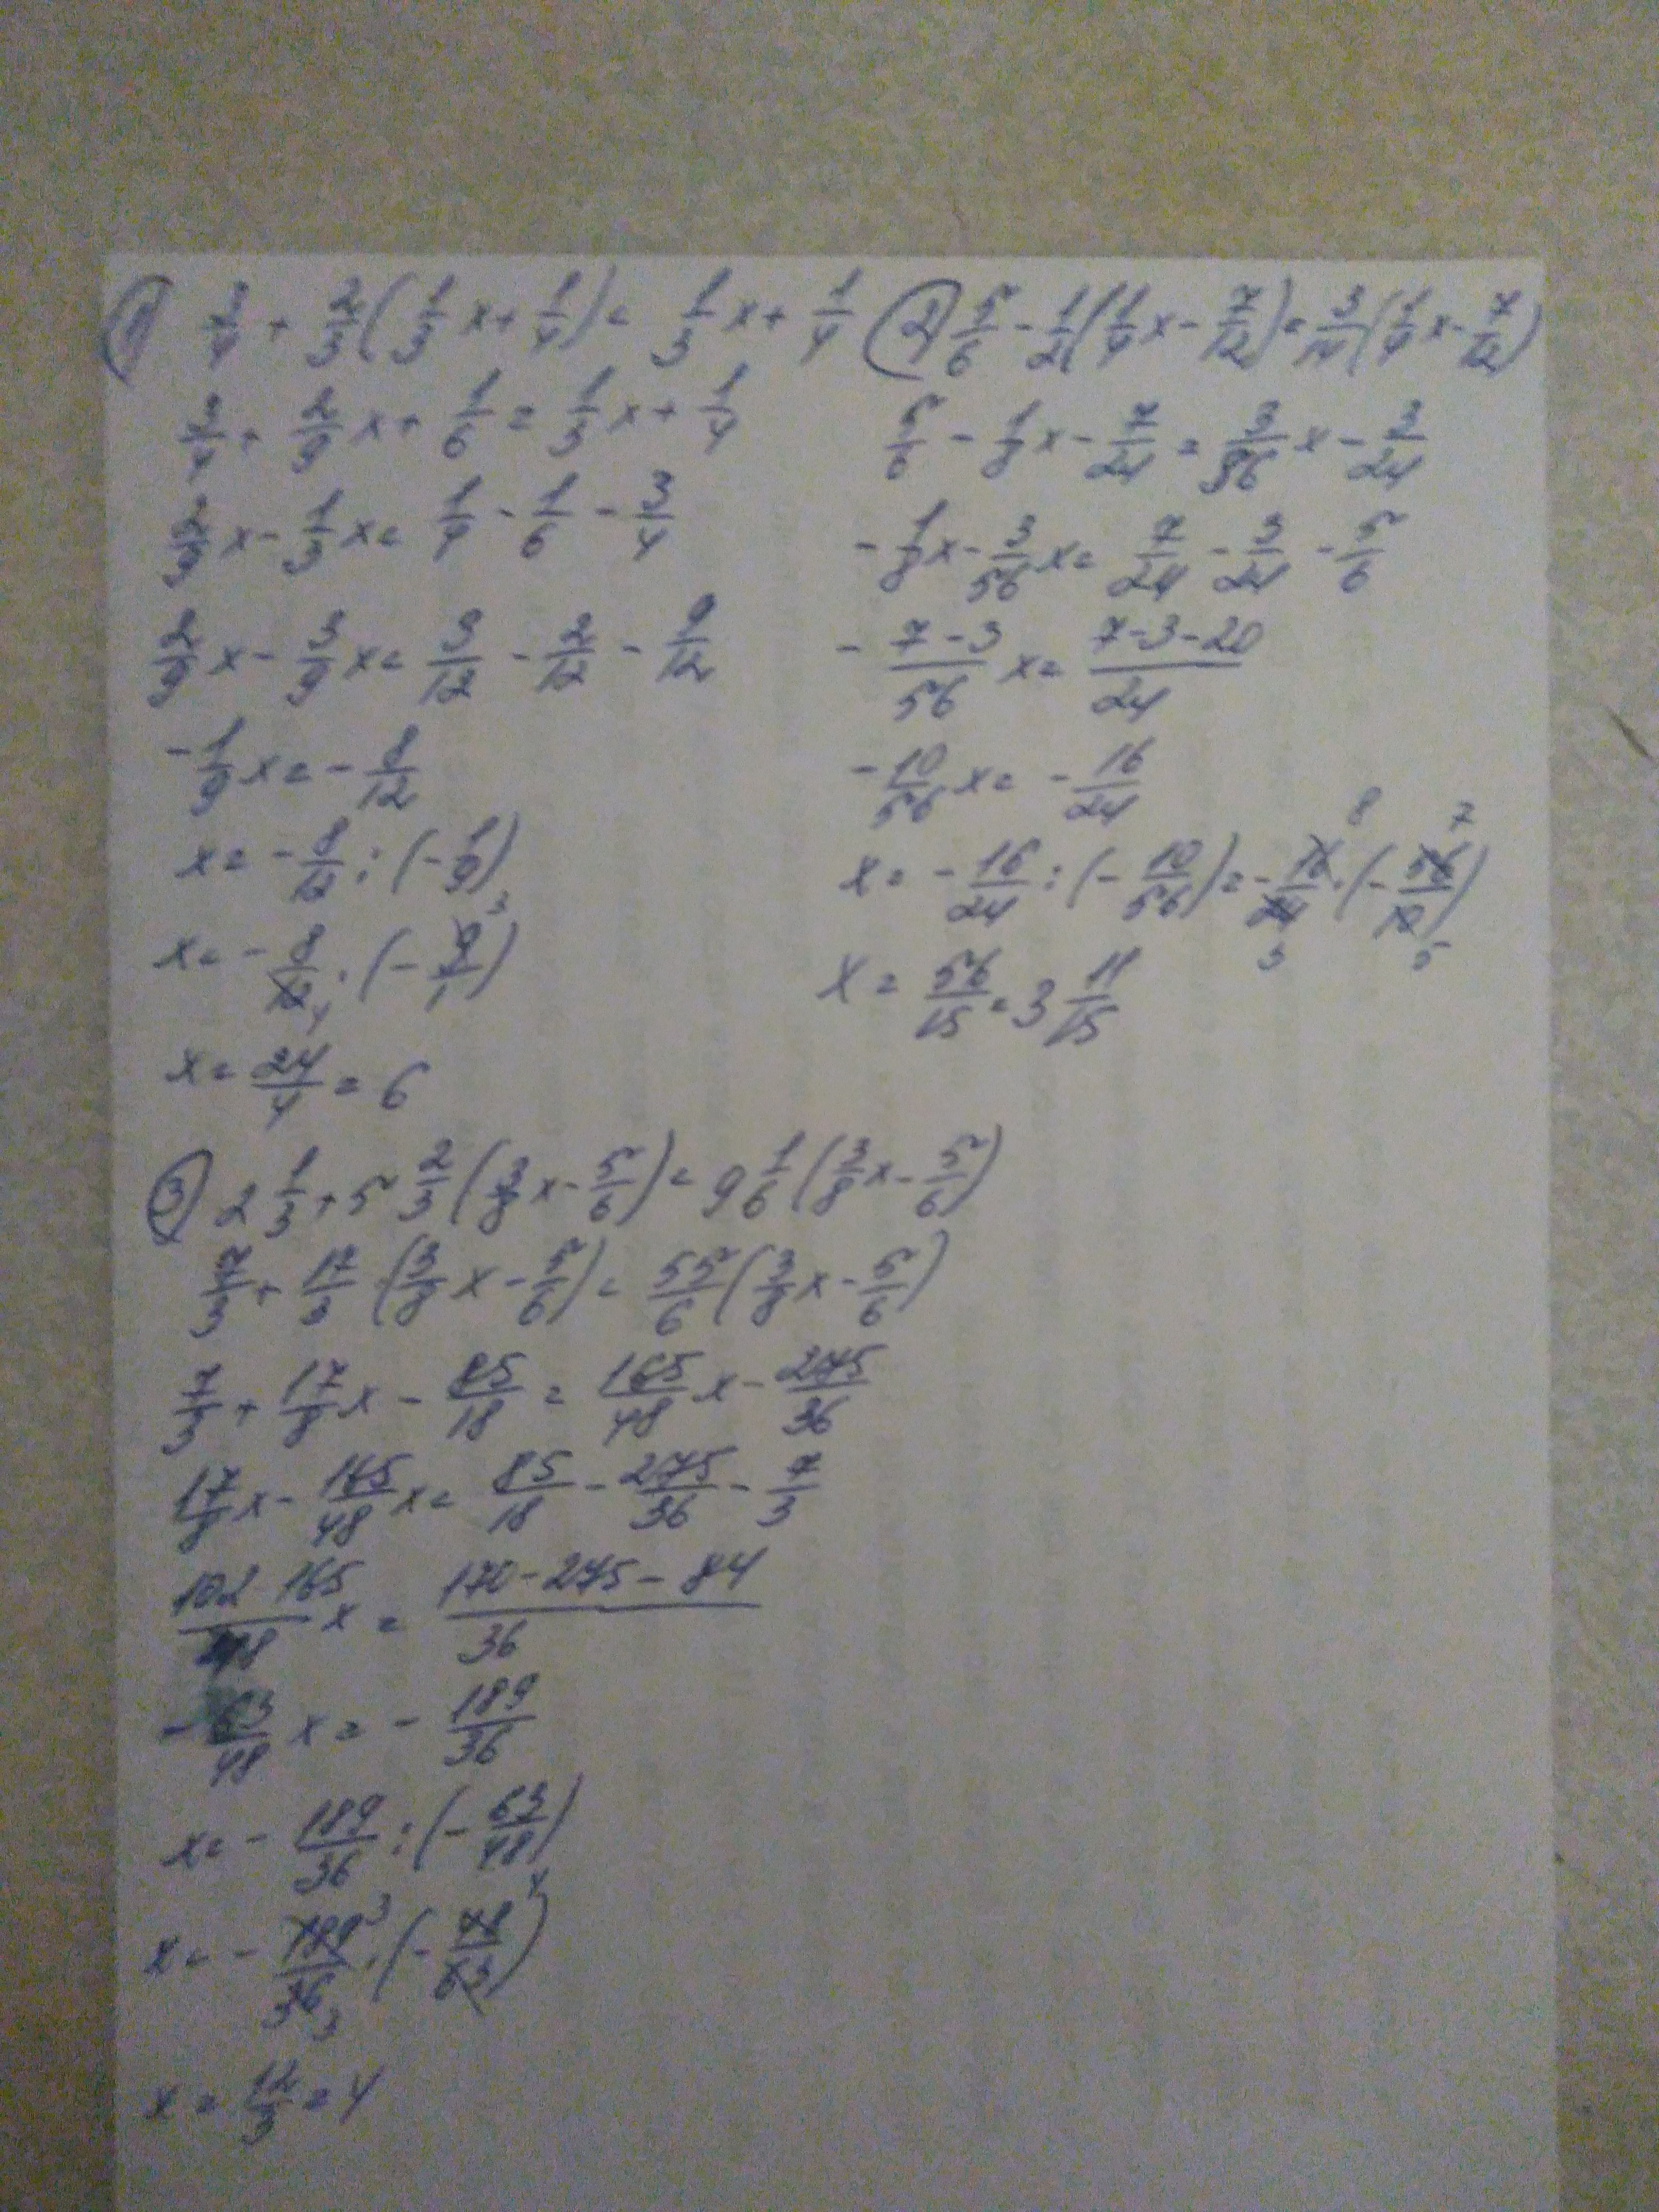 ① 3/4 + 2/3(1/3 x + 1/4) = 1/3 x + 1/4
3/4 + 2/9 x + 1/6 = 1/3 x + 1/4
2/9 x - 1/3 x = 1/4 - 1/6 - 3/4
2/9 x - 3/9 x = 3/12 - 2/12 - 9/12
- 1/9 x = - 8/12
x = - 8/12 : (- 1/9)
x = - 8/12 4 · (- 9/1) 3
x = 24/4 = 6
② 5/6 - 1/2(1/4 x - 7/12) = 3/14(1/4 x - 7/12)
5/6 - 1/8 x - 7/24 = 3/36 x - 3/24
- 1/8 x - 3/56 x = 7/24 - 3/24 - 5/6
- (7-3)/56 x = (7-3-20)/24
- 10/56 x = - 16/24
x = - 16/24 : (- 10/56) = - 16/24 · (- 56/10) 8 7 3 5
x = 56/15 = 3 11/15
③ 2 1/3 + 5 2/3 (3/8 x - 5/6) = 9 1/6 (3/8 x - 5/6)
7/3 + 17/3 (3/8 x - 5/6) = 55/6 (3/8 x - 5/6)
7/3 + 17/8 x - 85/18 = 165/48 x - 275/36
17/8 x - 165/48 x = 85/18 - 275/36 - 7/3
(102 165)/48 x = (170-275-84)/36
- 63/48 x = - 189/36
x = - 189/36 : (- 63/48)
x = - 189/36 3 3 · (- 48/63) 4
x = 12/3 = 4